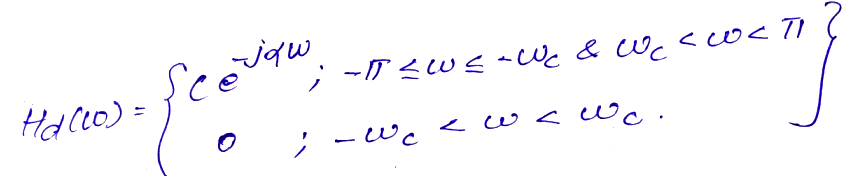 Hd(ω) = { C e^-jαω ; -π ≤ ω ≤ -ωc & ωc < ω < π }
0 ; -ωc < ω < ωc .